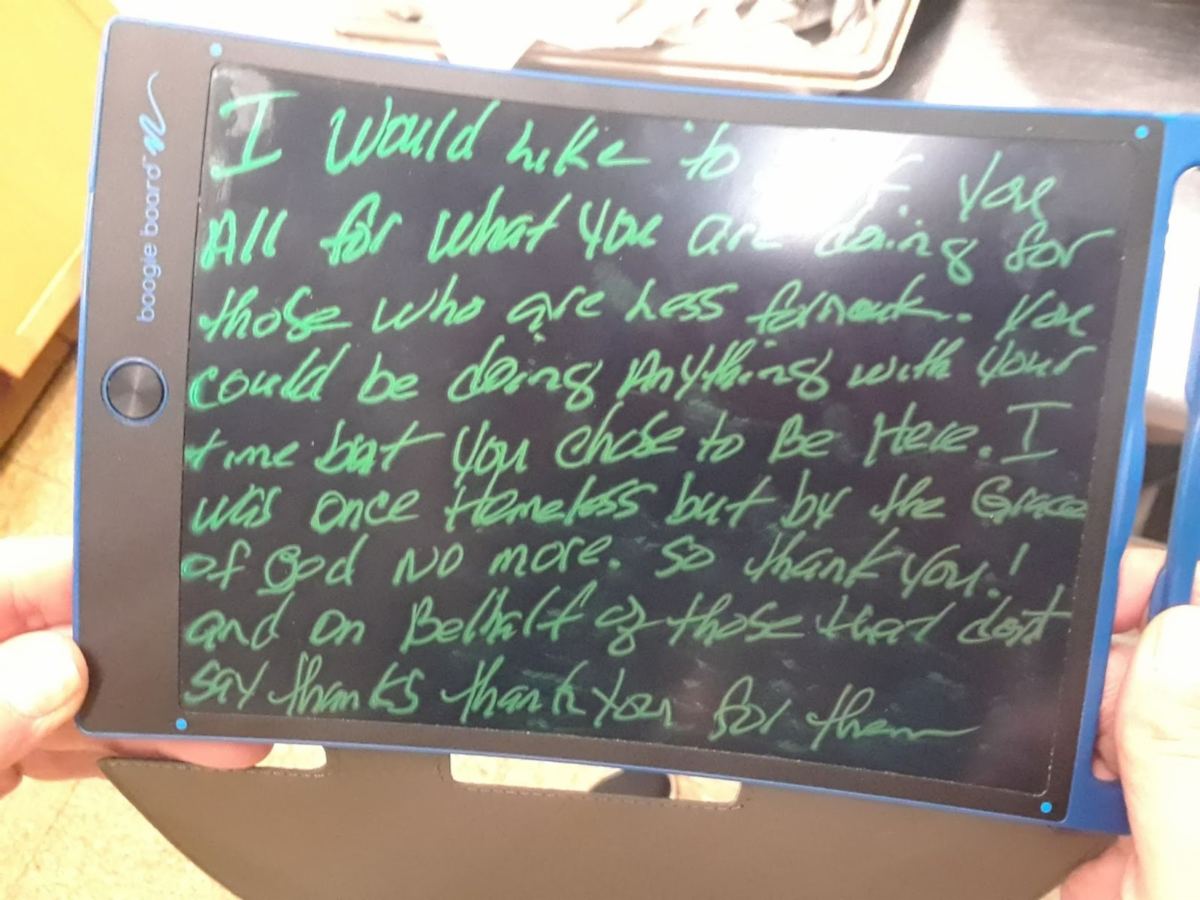 boogie board
I Would Like to You
All for what you are doing for
those who are Less You
could be doing Anything with your
time but you chose to Be Here. I
was once Homeless but by the Grace
of God No more. So thank you!
and on Behalf of those that dont
say thanks thank you for them